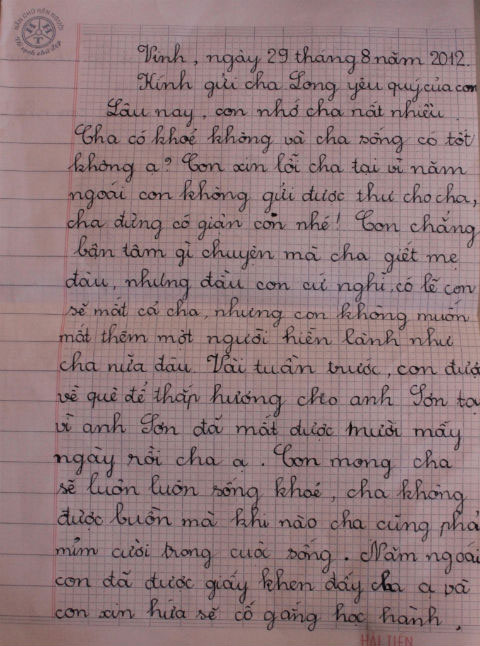 Vinh, ngày 29 tháng 8 năm 2012.
Kính gửi cha Long yêu quý của con
Lâu nay, con nhớ cha nất nhiều.
Cha có khoẻ không và cha sống có tốt
không ạ? Con xin lỗi cha tại vì năm
ngoái con không gửi được thư cho cha,
cha đừng có giận con nhé! Con chẳng
bận tâm gì chuyện mà cha giết mẹ
đâu, nhưng đầu con cứ nghĩ, có lẽ con
sẽ mất cả cha, nhưng con không muốn
mất thêm một người hiền lành như
cha nữa đâu. Vài tuần trước, con được
về quê để thắp hương cho anh Sơn ta
vì anh Sơn đã mất được mười mấy
ngày rồi cha ạ. Con mong cha
sẽ luôn luôn sống khoẻ, cha không
được buồn mà khi nào cha cũng phả
mỉm cười trong cuộc sống. Năm ngoái
con đã được giấy khen đấy cha ạ và
con xin hứa sẽ cố gắng học hành.
HẢI TIẾN